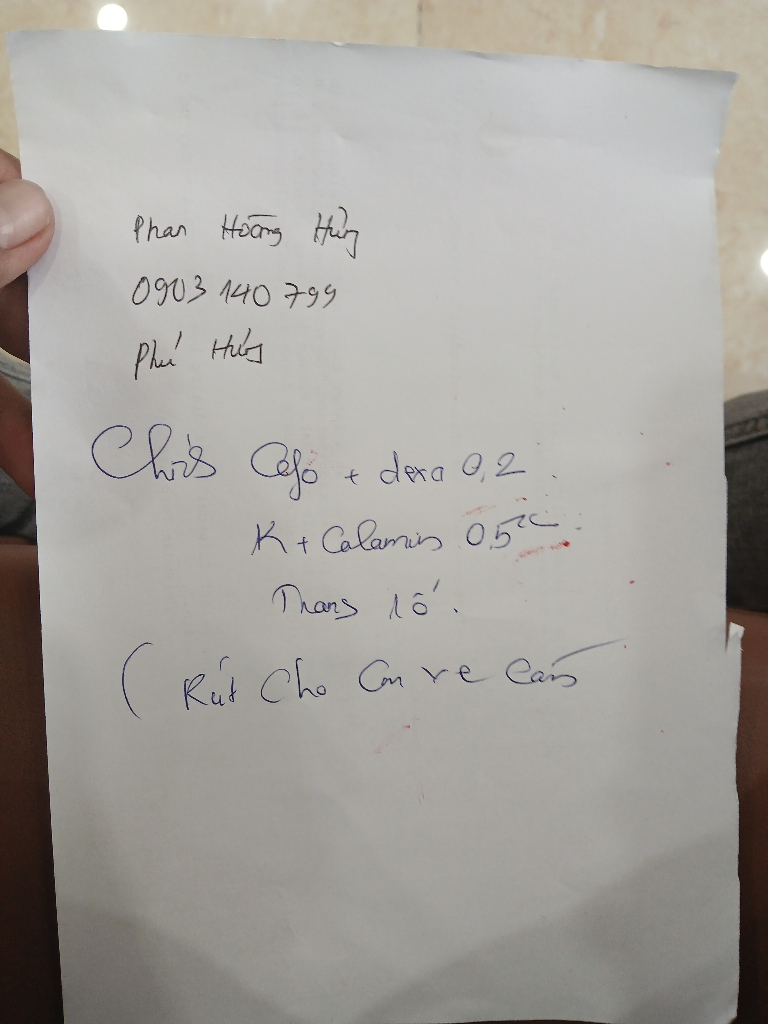 Phan Hoàng Hưng
0903 140 799
Phú Hưng
Chích Cefo + dexa 0,2
K + Calamin 0,5cc
Thang 10
(Rút cho con ve